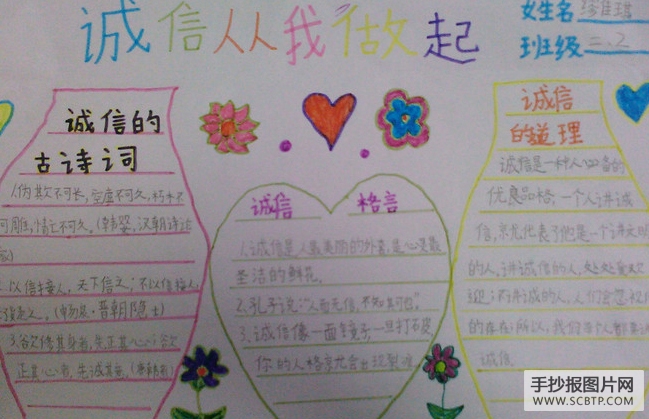 诚信从从我做起
女生名
班级二.2
诚信的
古诗词
1.伪欺不可长,空虚不可久,朽木不
可雕,情亡不可久。(韩婴,汉朝诗论
2.以信接人,天下信之;不以信接人,
妻子疑之。(畅泉·晋朝隐士)
3.欲修其身者,先正其心;欲
正其心者,先诚其意。
诚信 格言
1.诚信是人最美丽的外套,是心灵最
圣洁的鲜花。
2.孔子说:“人而无信,不知其可也”。
3.诚信像一面镜子,一旦打破,
你的人格就会出现裂痕
诚信
的道理
诚信是一种人人必备的
优良品格,一个人讲诚
信,就代表了他是一个讲文明
的人。讲诚信的人,处处受欢
迎;不讲诚信的人,人们会忽视他
的存在;所以,我们每个人都要讲
诚信
手抄报图片网
WWW.SCBTP.COM